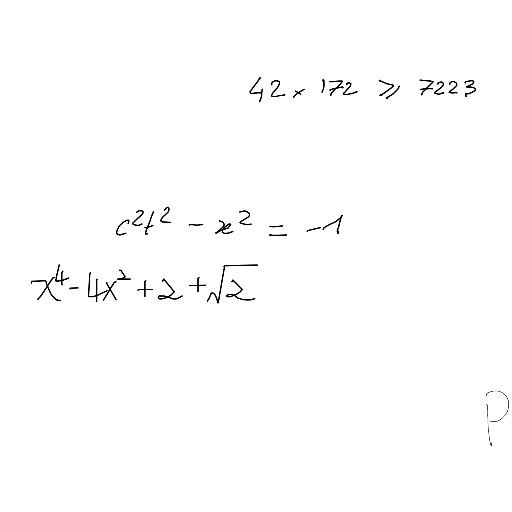 42 × 172 ⩾ 7223
c²t² - x² = -1
x⁴ - 4x² + 2 + √2
P